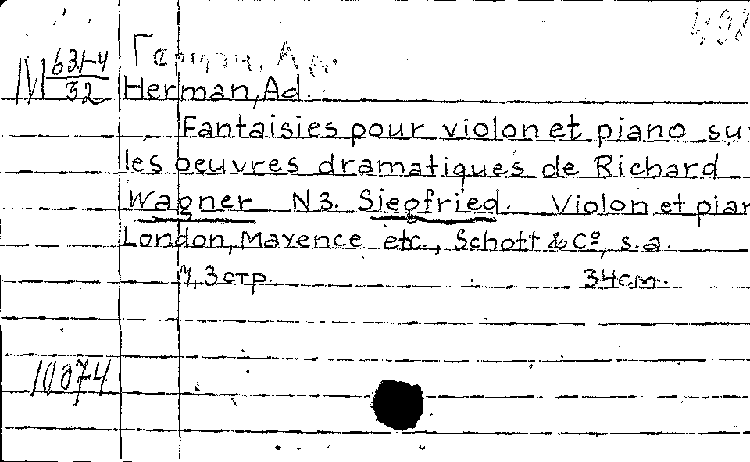 498
М 631-4/32
Герман, Ад.
Herman, Ad.
Fantaisies pour violon et piano sur
les oeuvres dramatiques de Richard
Wagner N3. Siegfried. Violon et pian
London, Mayence etc., Schott & Cº, s.a.
7, 3 стр. 34 см.
10074